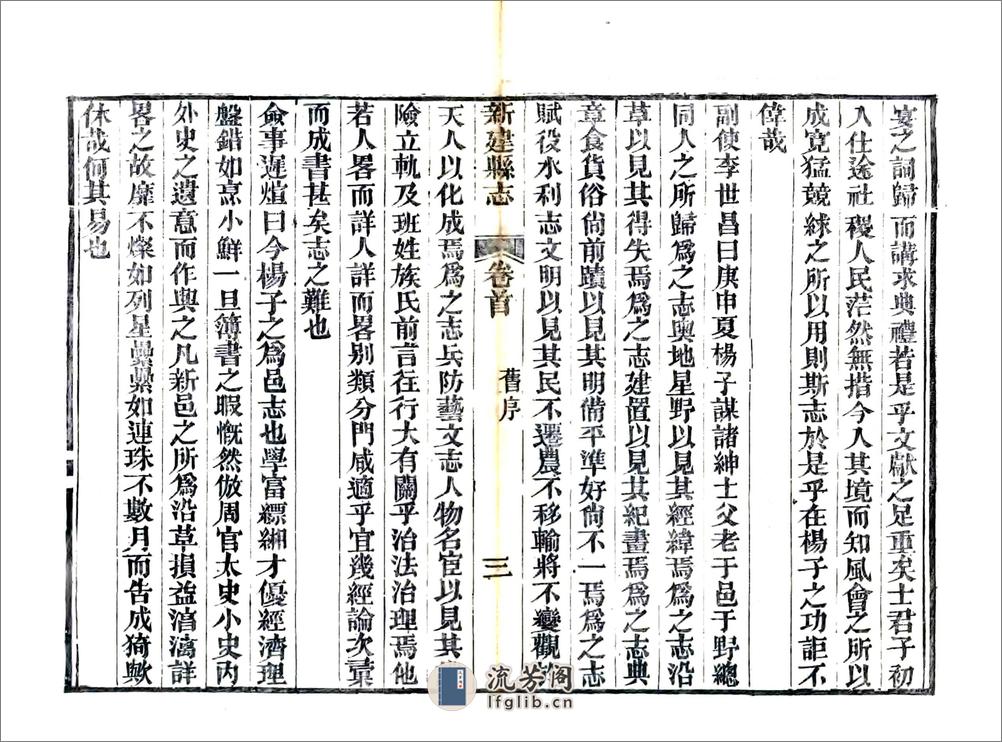 宴之詞歸而講求典禮若是乎文獻之足重矣士君子初
入仕途社稷人民茫然無措今人其境而知風會之所以
成寛猛競絿之所以用則斯志於是乎在楊子之功詎不
偉哉
副使李世昌曰庚申夏楊子謀諸紳士父老于邑于野總
同人之所歸爲之志輿地星野以見其經緯焉爲之志沿
革以見其得失焉爲之志建置以見其紀畫焉爲之志典
章食貨俗尙前蹟以見其明備平準好尙不一焉爲之志
賦役水利志文明以見其民不遷農不移輸將不變觀
天人以化成焉爲之志兵防藝文志人物名宦以見其
險立軌及班姓族氏前言往行大有關乎治法治理焉他
若人畧而詳人詳而畧別類分門咸適乎宜幾經論次彚
而成書甚矣志之難也
僉事遲煊曰今楊子之爲邑志也學富縹緗才優經濟理
盤錯如烹小鮮一旦簿書之暇慨然倣周官太史小史內
外史之遺意而作與之凡新邑之所爲沿革損益濳濳詳
畧之故靡不燦如列星纍纍如連珠不數月而告成猗歟
休哉何其易也
新建縣志
卷首
舊序
三
流芳阁
lfglib.cn